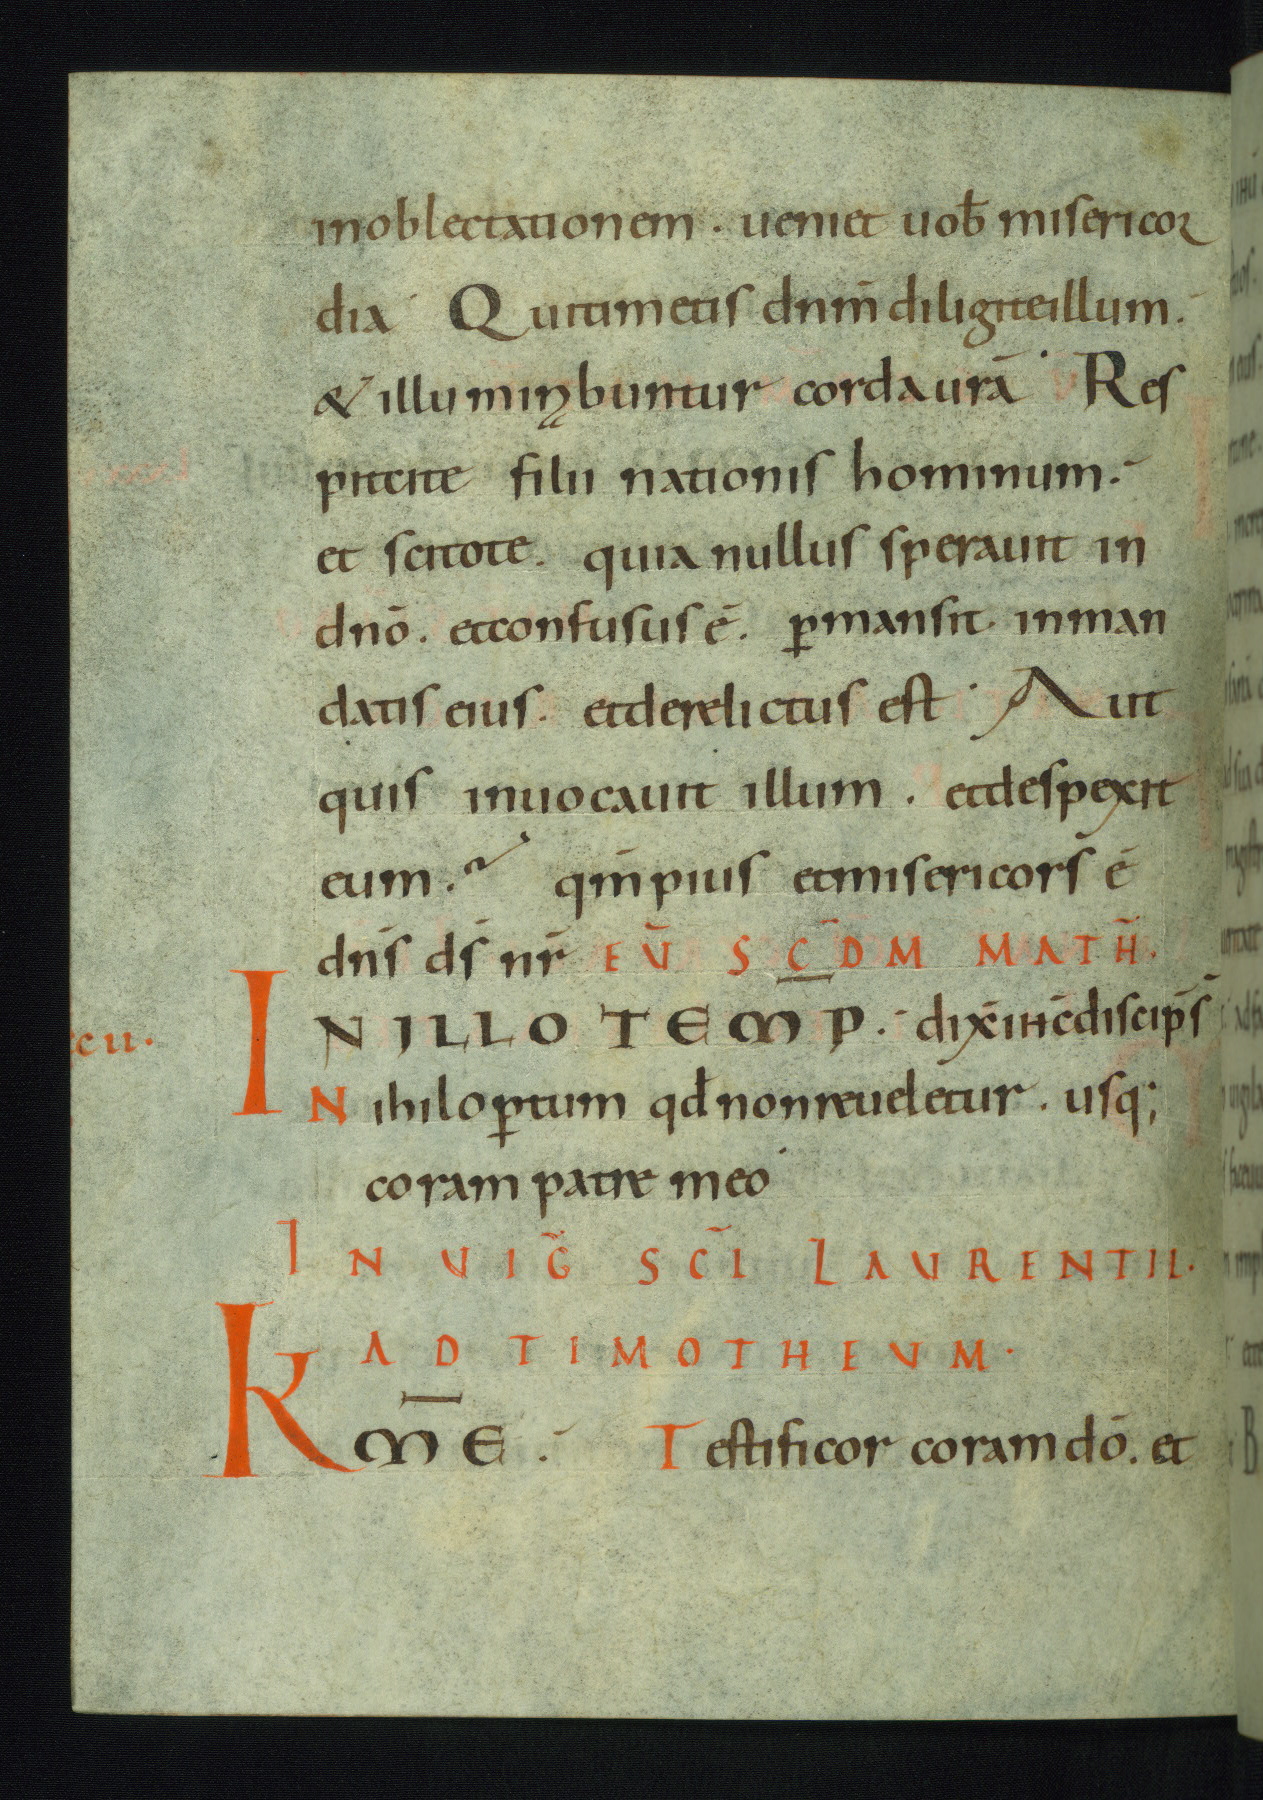 inoblectationem . ueniet uob̄ misericor
dia Quitimetis dn̄m diligiteillum .
& illuminabuntur corda ur̄a Res
piteite filii nationis hominum .
et scitote . quia nullus sperauit in
dnō . etconfusus ē . p̱mansit . inman
datis eius . etderelictus est Aut
quis inuocauit illum . etdespexit
eum . qm̄ pius etmisericors ē
dn̄s ds̄ nr̄ EŪ SC̄DM MATH̄ .
IN ILLO TEMP̄ . dix̄ ih̄c discip̄s
ccu .
Nihil op̱tum qd̄ nonreueletur . usq;
coram patre meo
IN UIḠ SC̄I LAURENTII .
AD TIMOTHEUM .
K̄ME . Testificor coram dō . et